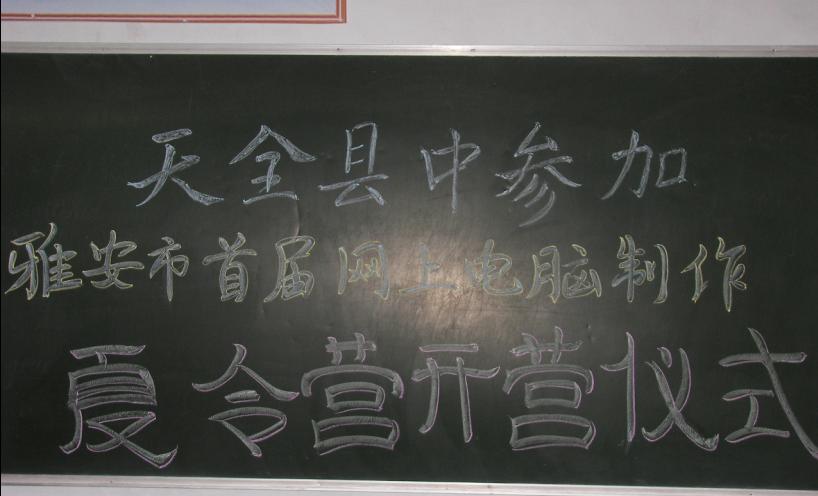 天全县中参加
雅安市首届网上电脑制作
夏令营开营仪式